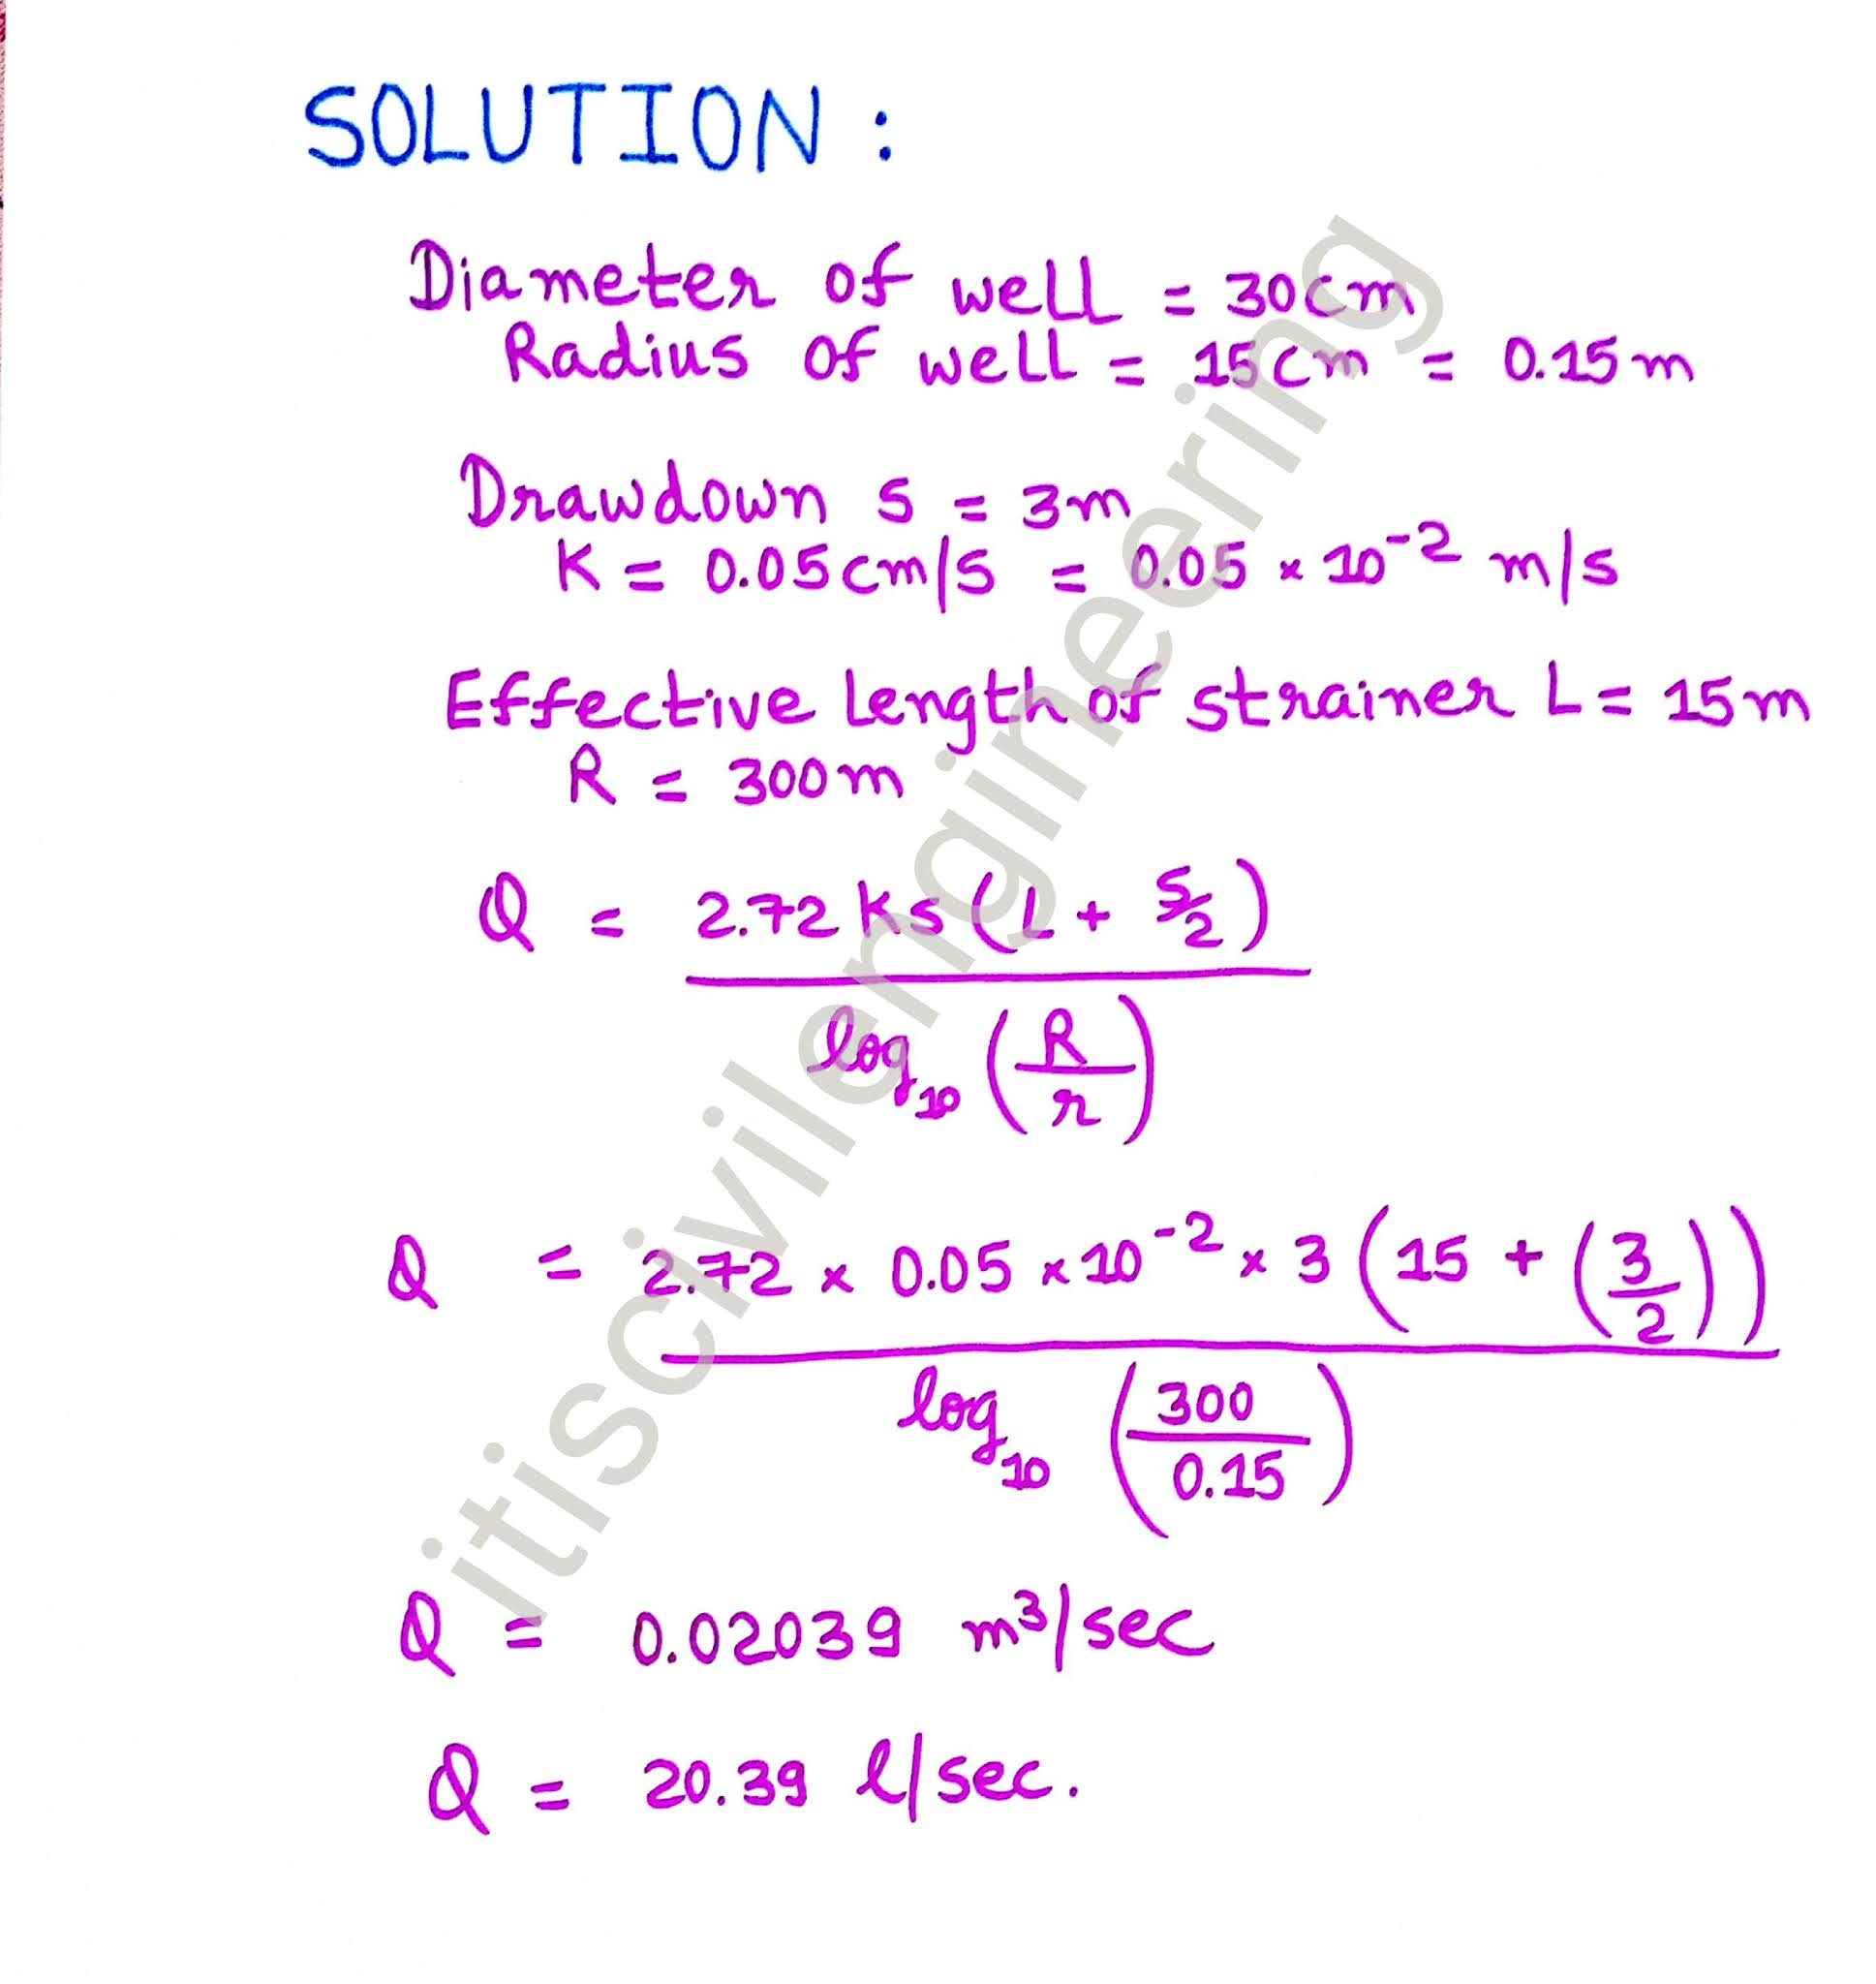 SOLUTION :
Diameter of well = 30cm
Radius of well = 15cm = 0.15m
Drawdown s = 3m
K = 0.05cm/s = 0.05 × 10⁻² m/s
Effective length of strainer L = 15m
R = 300m
Q = 2.72 Ks (L + s/2)
log₁₀ (R/r)
Q = 2.72 × 0.05 × 10⁻² × 3 (15 + (3/2))
log₁₀ (300/0.15)
Q = 0.02039 m³/sec
Q = 20.39 l/sec.
itiscivilengineering